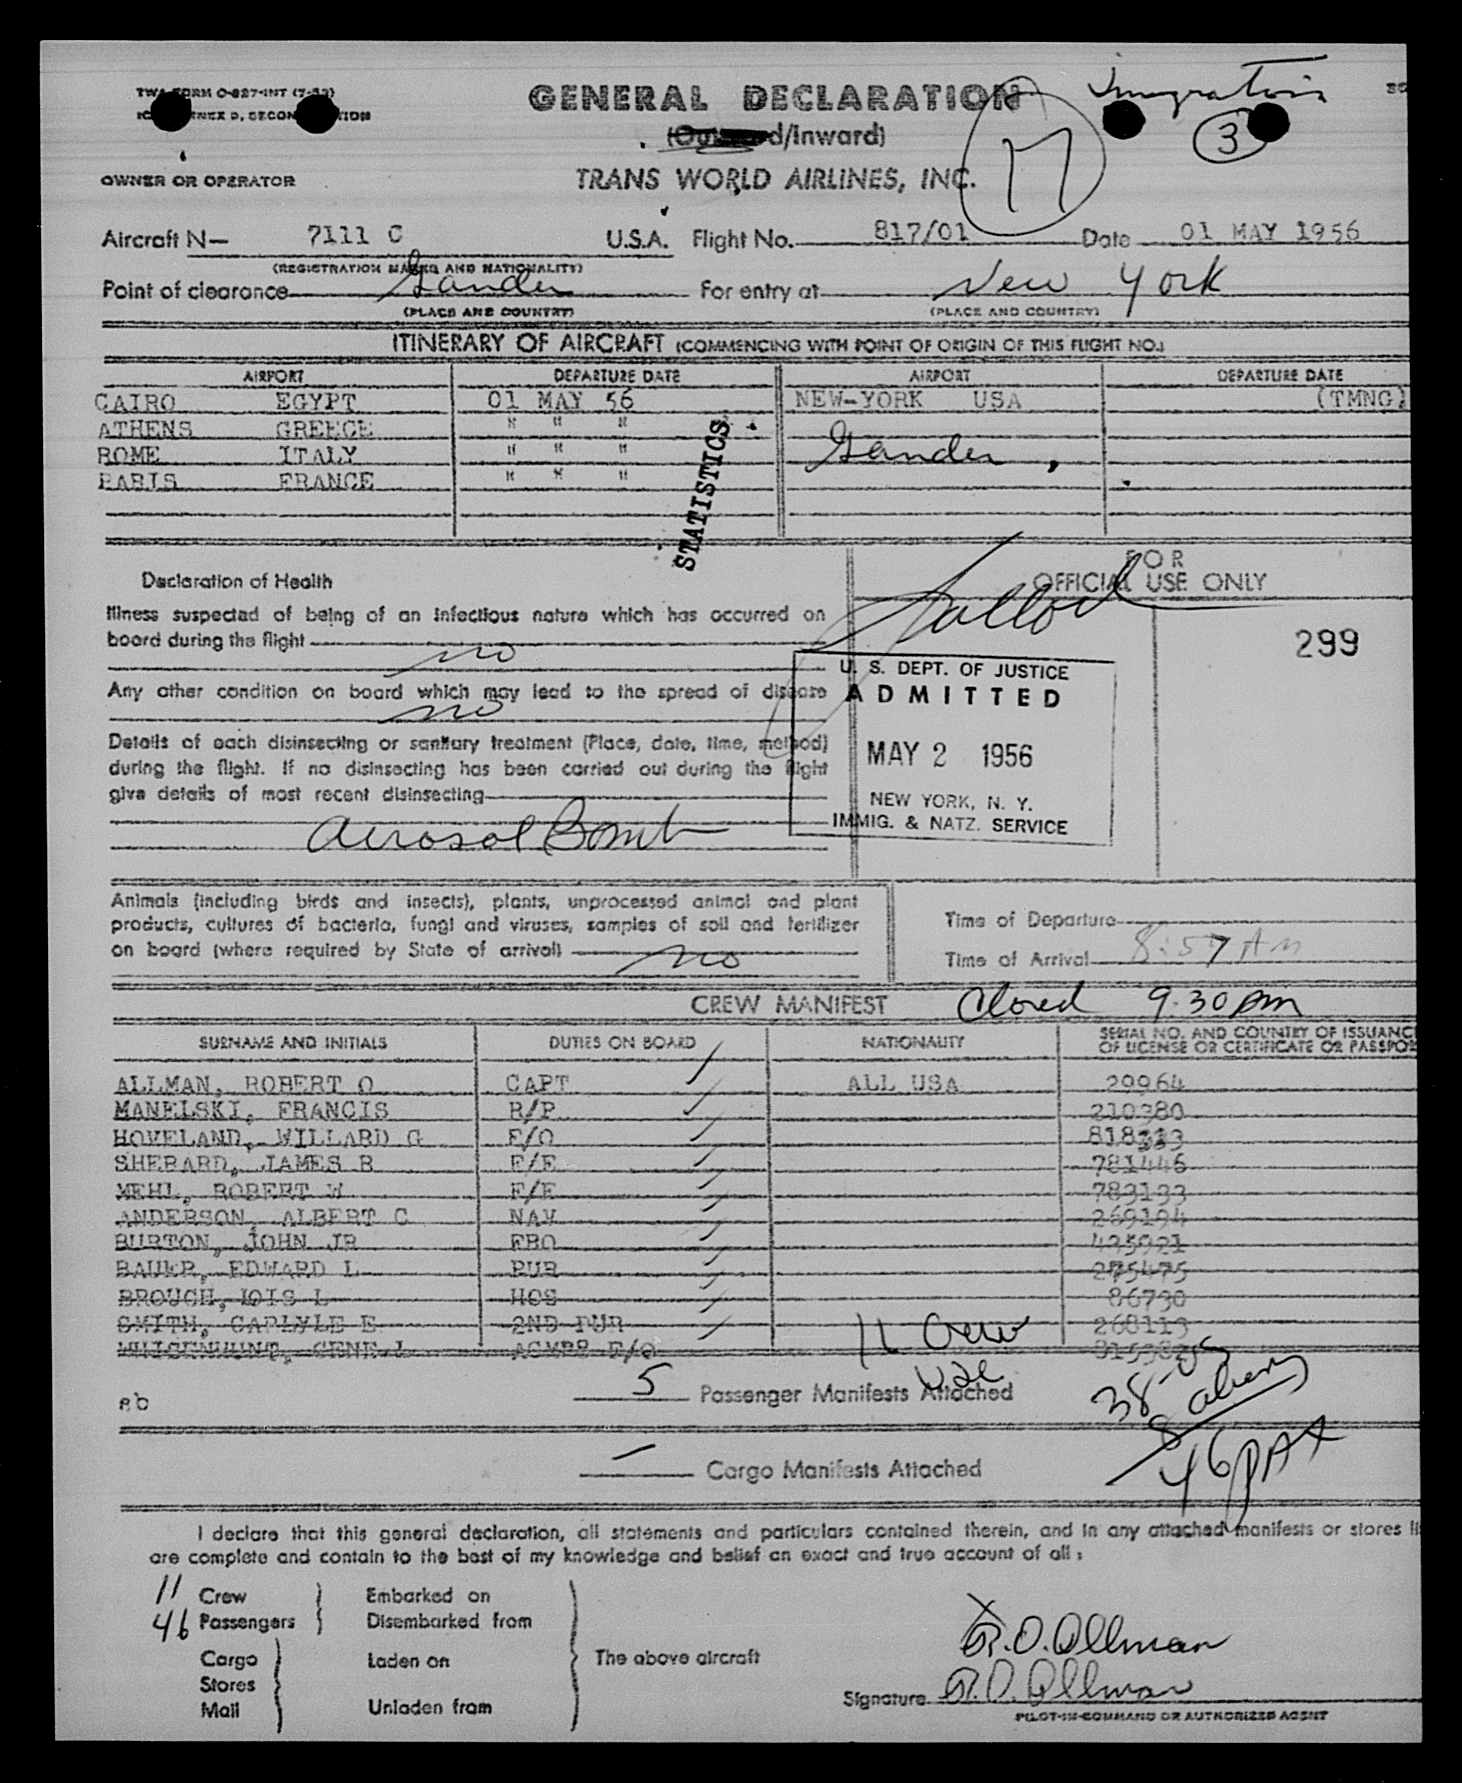 TWA FORM O-827-INT
GENERAL DECLARATION
Immigration
(Outward/Inward)
17
3
OWNER OR OPERATOR
TRANS WORLD AIRLINES, INC.
Aircraft N— 7111 C U.S.A. Flight No. 817/01 Date 01 MAY 1956
(REGISTRATION MARKS AND NATIONALITY)
Point of clearance Gander For entry at New York
(PLACE AND COUNTRY) (PLACE AND COUNTRY)
ITINERARY OF AIRCRAFT (COMMENCING WITH POINT OF ORIGIN OF THIS FLIGHT NO.)
AIRPORT DEPARTURE DATE AIRPORT DEPARTURE DATE
CAIRO EGYPT 01 MAY 56 NEW-YORK USA (TMNG)
ATHENS GREECE " " "
ROME ITALY " " " Gander
PARIS FRANCE " " "
STATISTICS
FOR
Declaration of Health OFFICIAL USE ONLY
Illness suspected of being of an infectious nature which has occurred on
board during the flight no
299
U. S. DEPT. OF JUSTICE
Any other condition on board which may lead to the spread of disease
no
ADMITTED
Details of each disinsecting or sanitary treatment (Place, date, time, method)
MAY 2 1956
during the flight. If no disinsecting has been carried out during the flight
give details of most recent disinsecting
NEW YORK, N. Y.
IMMIG. & NATZ. SERVICE
Aerosol Bomb
Animals (including birds and insects), plants, unprocessed animal and plant
products, cultures of bacteria, fungi and viruses, samples of soil and fertilizer
on board (where required by State of arrival) no
Time of Departure
Time of Arrival 8:57 AM
CREW MANIFEST Closed 9.30 pm
SURNAME AND INITIALS DUTIES ON BOARD NATIONALITY SERIAL NO. AND COUNTRY OF ISSUANC
OF LICENSE OR CERTIFICATE OR PASSPO
ALLMAN, ROBERT O CAPT ALL USA 29964
MANELSKI, FRANCIS R/P 210380
HOVELAND, WILLARD G F/O 818
SHERARD, JAMES B F/E 781446
MEHL, ROBERT W F/E 783133
ANDERSON, ALBERT C NAV 269194
BURTON, JOHN JR FRO 435921
BAUER, EDWARD L PUR 275475
BROUCH, LOIS L HOS 86730
SMITH, CARLYLE E 2ND PUR 268113
GENE L F/O
11 Crew
5 Passenger Manifests Attached
38
8 aliens
46 PAX
Cargo Manifests Attached
I declare that this general declaration, all statements and particulars contained therein, and in any attached manifests or stores li
are complete and contain to the best of my knowledge and belief an exact and true account of all:
11 Crew Embarked on
46 Passengers Disembarked from
Cargo Laden on The above aircraft
Stores
Mail Unladen from
R.O. Allman
Signature R.O. Allman
PILOT-IN-COMMAND OR AUTHORIZED AGENT